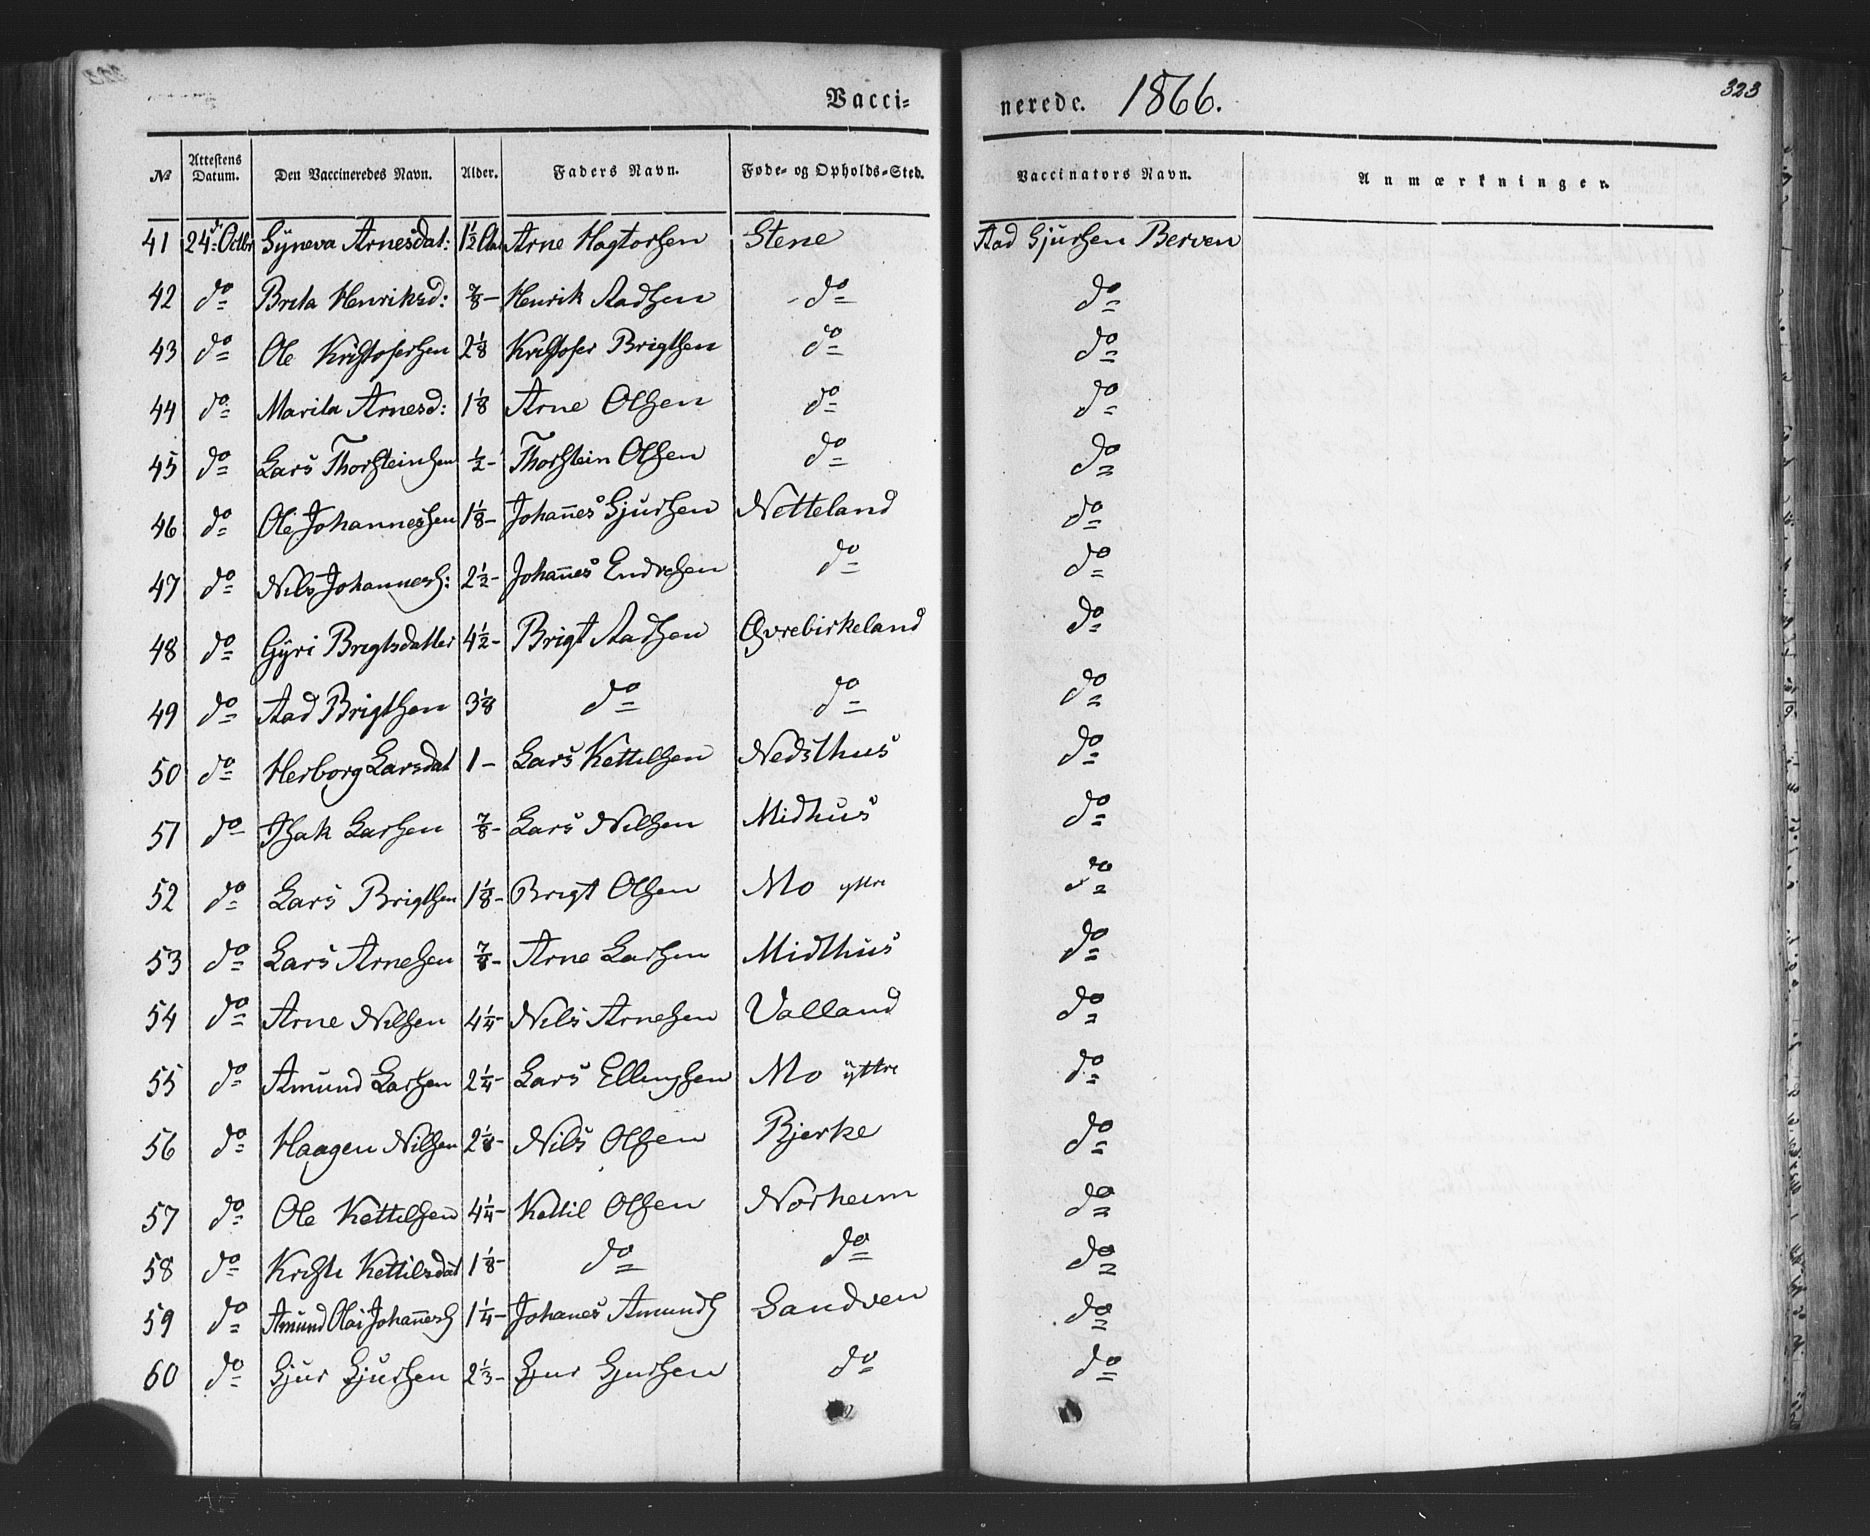 323
Vacci- nerede. 1866.
№ Attestens Datum. Den Vaccineredes Navn. Alder. Faders Navn. Føde- og Opholds-Sted. Vaccinators Navn. Anmærkninger.
41 24de Octbr Syneva Arnesdat: 1½ Arne Hagtorsen Stene Aad Sjursen Berven
42 do Brita Henriksd: ⅞ - Henrik Aadsen do do
43 do Ole Kristofersen 2⅛ Kristofer Brigtsen do do
44 do Marita Arnesd: 1⅛ Arne Olsen do do
45 do Lars Thorsteinsen ½ - Thorstein Olsen do do
46 do Ole Johannessen 1⅛ - Johan̄es Sjursen Netteland do
47 do Nils Johanness: 2½ - Johan̄es Endresen do do
48 do Gyri Brigtsdatter 4½ - Brigt Aadsen Øvrebirkeland do
49 do Aad Brigtsen 3⅛ do do do
50 do Herborg Larsdat 1 - Lars Kettilsen Nedsthus do
51 do Isak Larsen ⅞ - Lars Nilsen Midhus do
52 do Lars Brigtsen 1⅛ - Brigt Olsen Mo yttre do
53 do Lars Arnesen ⅞ - Arne Larsen Midthus do
54 do Arne Nilsen 4¼ - Nils Arnesen Valland do
55 do Amund Larsen 2¼ - Lars Ellingsen Mo yttre do
56 do Haagen Nilsen 2⅛ - Nils Olsen Bjerke do
57 do Ole Kettilsen 4¼ - Kettil Olsen Norheim do
58 do Kristi Kettilsdat 1⅛ - do do do
59 do Amund Olai Johan̄ess 1¼ - Johanes Amunds Sandven do
60 do Sjur Sjursen 2⅓ - Sjur Sjursen do do